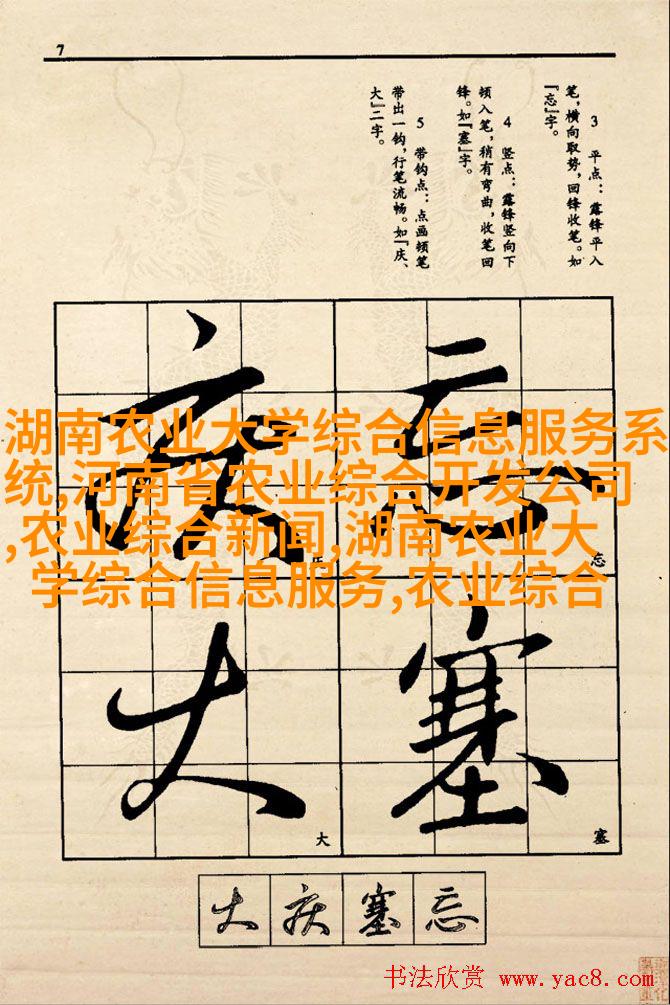 7
3 平点：露锋平入
笔，横向取势，回锋收笔。如
『忘』字。
4 竖点：露锋竖向下
顿入笔，稍有弯曲，收笔回
锋。如『塞』字。
5 带钩点：点画顿笔
带出一钩，行笔流畅。如『庆、
大』二字。
湖南农业大学综合信息服务系
统,河南省农业综合开发公司
,农业综合新闻,湖南农业大
学综合信息服务,农业综合
忘
庆
塞
大
忘
庆
塞
大
大庆塞忘
书法欣赏 www.yac8.com